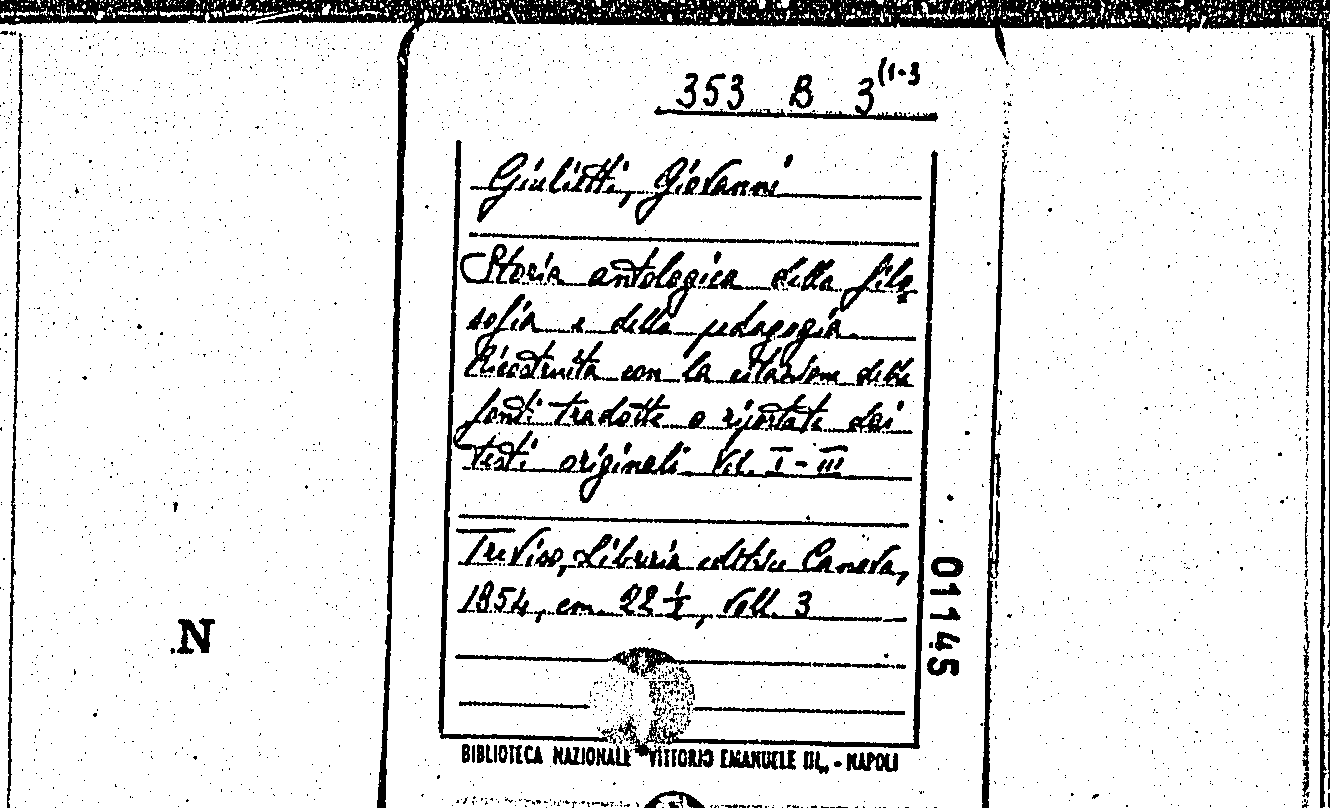 353 B 3 (1-3
Giulietti, Giovanni
Storia antologica della filo
sofia e della pedagogia.
Ricostruita con la citazione delle
fonti tradotte o riportate dai
testi originali. Vol. I-III
Treviso, Libreria editrice Canova,
1954, cm. 22 ½, Voll. 3
01145
N
BIBLIOTECA NAZIONALE "VITTORIO EMANUELE III„ - NAPOLI